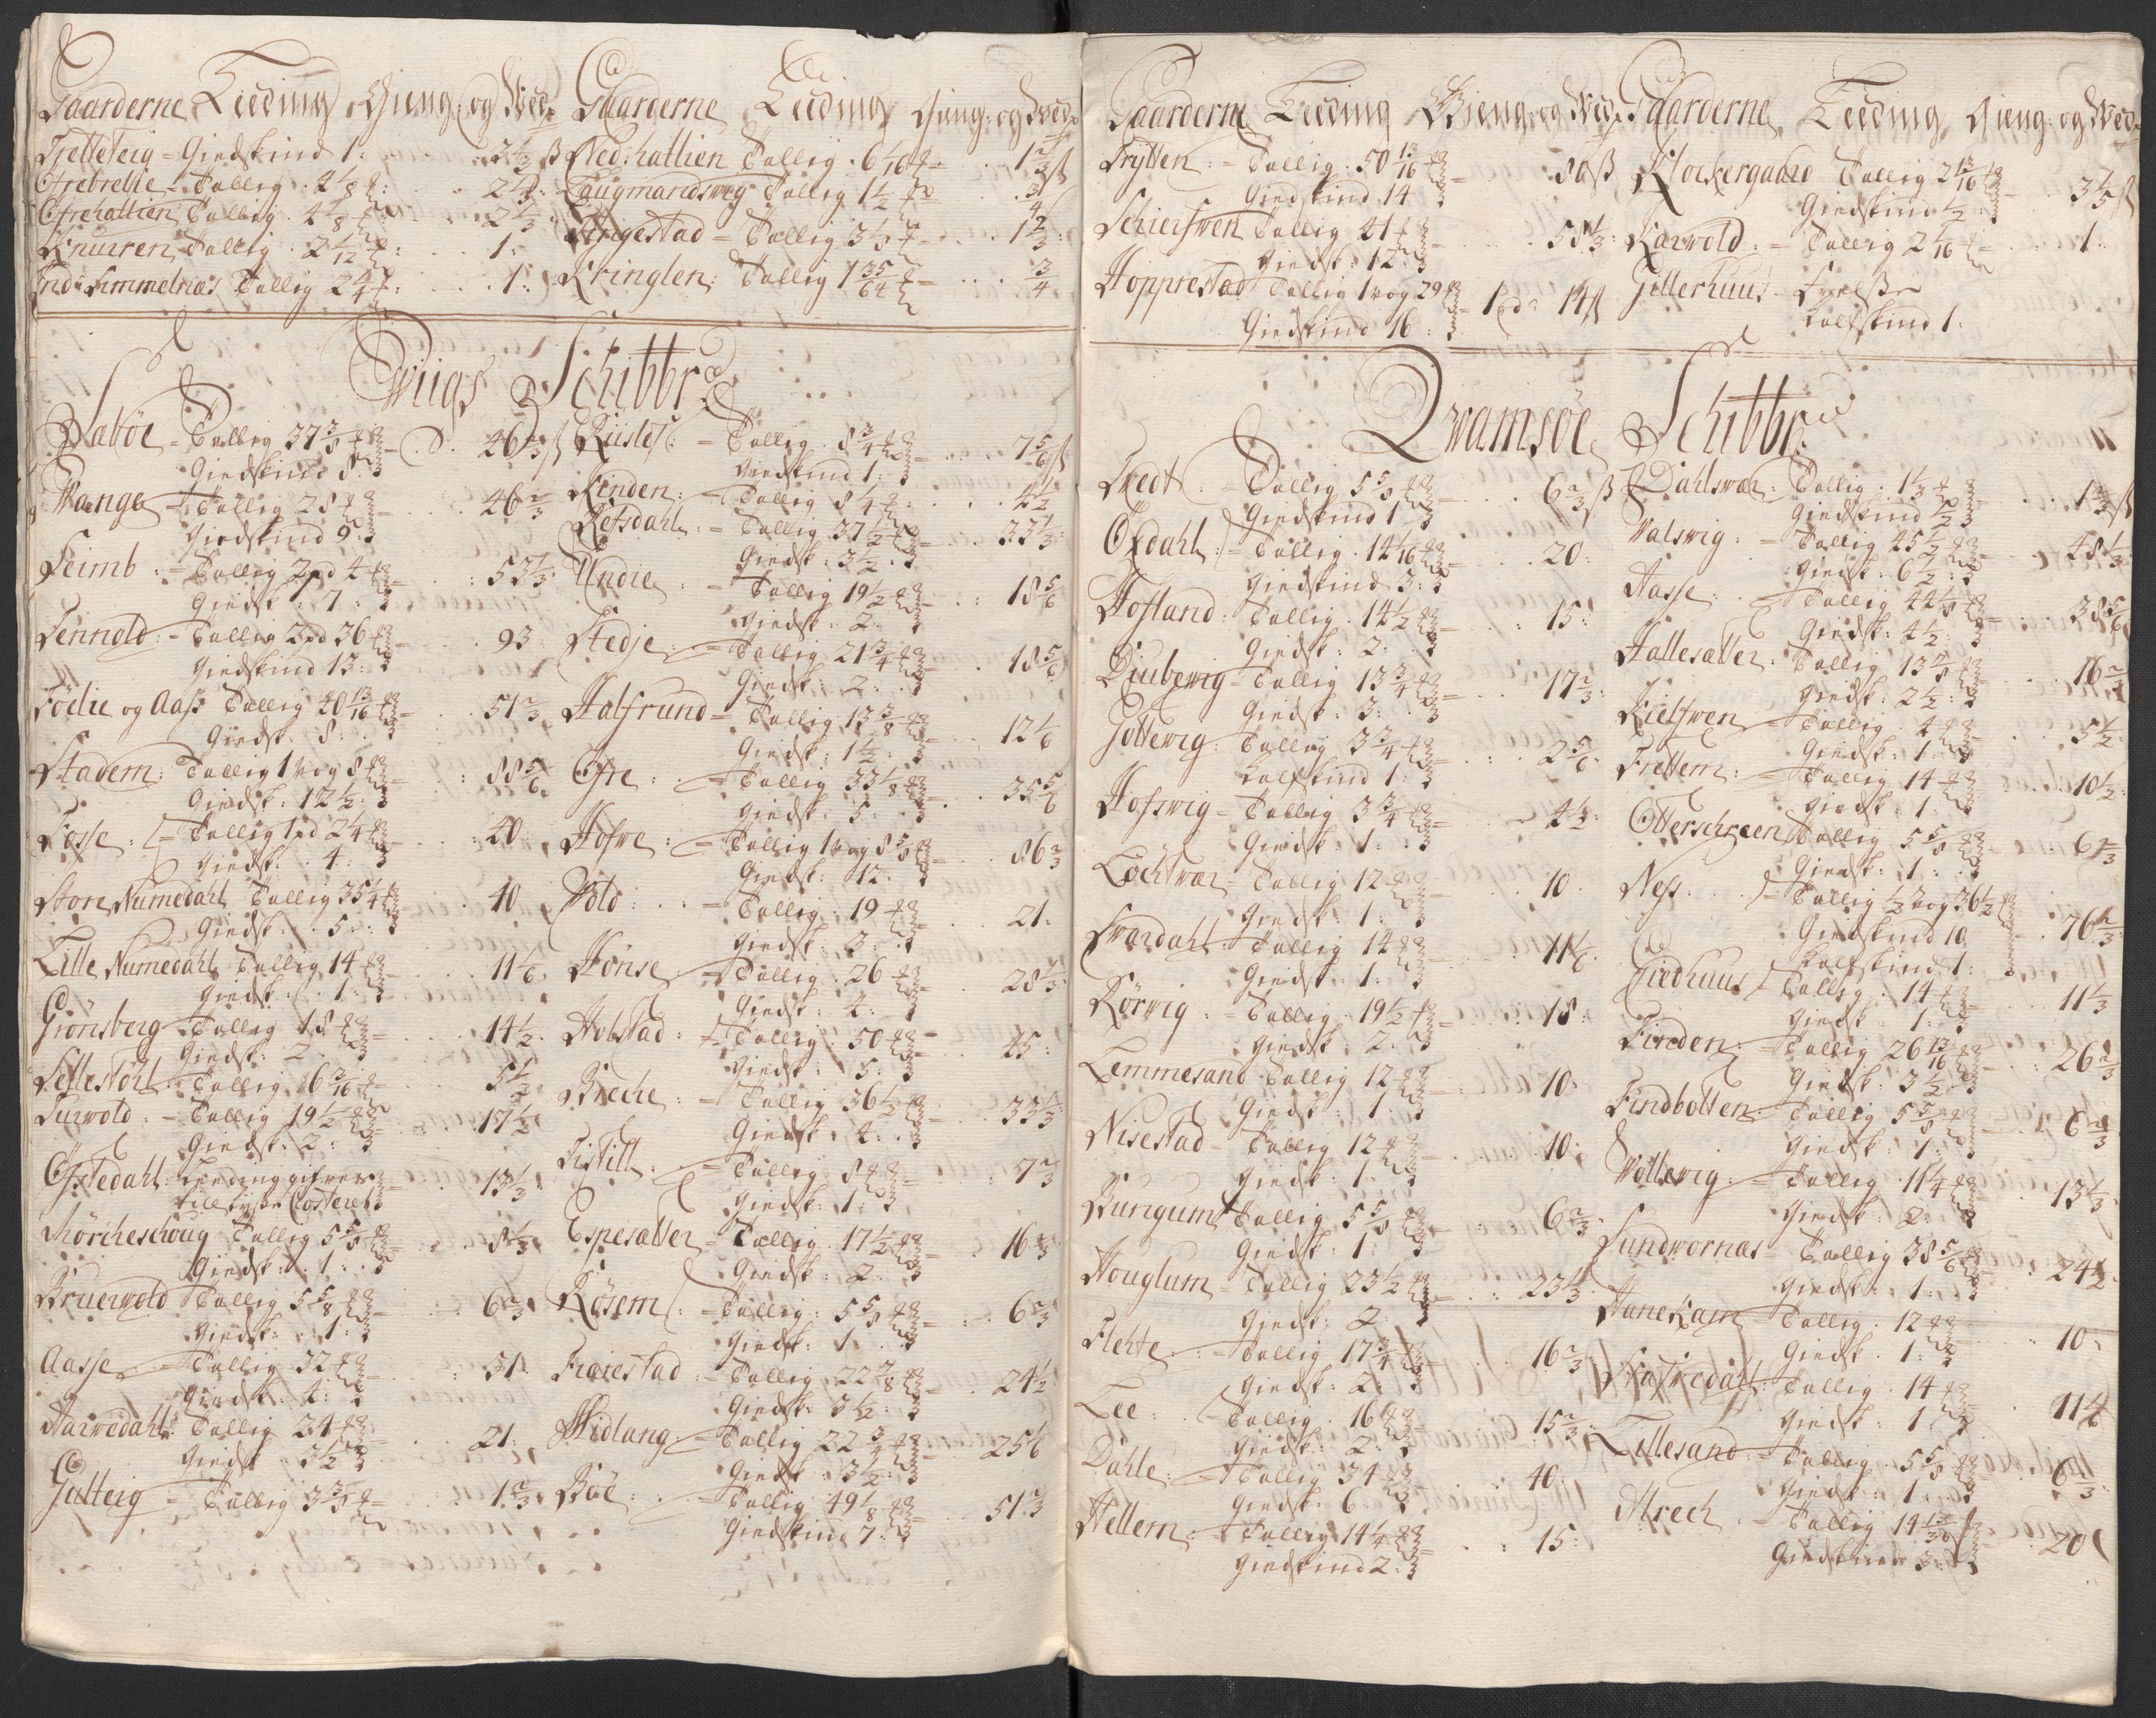 Gaarderne Leeding Gieng: og Weds
Tietteteig = Giedskind 1: 3 1/3 ß
Ofrebrelie = Tallig 4 1/8 2 1/3
Ofrehattien Tallig 4 1/8 2 1/3
Knurren Tallig 2 1/12 1:
Ind: Simmelnæs Tallig 2 4/4 1:
Gaarderne Leeding Gieng: og Weds
Ned: hattien Tallig 6 1/16 1 2/3 ß
Laugmandsvig Tallig 1 1/2 3/4
Ringestad = Tallig 3 1/8 1 2/3
Kringlen: Tallig 1 35/64 3/4
Wiigs Schibbr:
Saltöe = Tallig 37 3/8 46 2/3 ß
Giedskind 8:
Wange = Tallig 28 46 2/3
Giedskind 9:
Seimb = Tallig 2 pd 4 53 1/3
Giedsk: 7:
Sennold = Tallig 2 pd 36 93
Giedskind 13:
Födlie og Aass Tallig 40 13/16 51 2/3
Giedsk: 8:
Stadem: Tallig 1 vog 8 88 5/6
Giedsk: 12 1/2:
Fosse: = Tallig 1 pd 2 1/4 40
Giedsk: 4:
Store Numedahl Tallig 35 1/4 40
Giedsk: 5:
Lille Numedahl Tallig 14 11 1/6
Giedsk: 1:
Grönsberg Tallig 18 14 1/2
Giedsk: 2
Sellestöhl Tallig 6 3/16 5 1/2
Turvold: = Tallig 19 1/2 17 1/2
Giedsk: 2:
Ofstedahl: Leeding gifves 13 1/3
till Lysse Closteret
Mörcheschoug Tallig 5 5/8 8 1/3
Giedsk: 1:
Bruervold Tallig 5 5/8 6 2/3
Giedsk: 1:
Aasse = Tallig 32 31
Giedsk: 4:
Aarvedahl: Tallig 24 21:
Giedsk 3 1/2
Gulteig = Tallig 3 3/8 1 2/3
Riisle: = Tallig 8 3/4 7 5/6 ß
Giedskind 1:
Linden: = Tallig 8 1/4 4 1/2
Refsdahl: = Tallig 37 1/2 33 1/3
Giedsk: 3 1/2:
Undie = Tallig 19 1/2 18 5/6
Giedsk: 2:
Stedje: = Tallig 21 3/4 18 5/6
Giedsk: 2:
Halfrund = Tallig 13 3/8 12 1/6
Giedsk: 1 1/2:
Ofre: = Tallig 33 1/8 35 5/6
Giedsk: 5:
Hofve: = Tallig 1 vog 8 5/8 86 2/3
Giedsk: 12
Vold: = Tallig 19 21:
Giedsk: 3:
Hönse = Tallig 26 28 1/3
Giedsk: 4:
Hobstad: = Tallig 50 45:
Giedsk: 5:
Breche: = Tallig 36 1/2 33 1/3
Giedsk: 4:
Tistill: = Tallig 8 7 2/3
Giedsk: 1:
Espesætter = Tallig 17 1/2 16 2/3
Giedsk: 2:
Rösem: = Tallig 5 5/8 6 2/3
Giedsk: 1:
Frærestad = Tallig 22 3/8 24 1/2
Giedsk: 3 1/2:
Midlang: = Tallig 22 3/4 25 1/6
Giedsk: 3 1/2:
Böe: = Tallig 49 1/8 51 2/3
Giedskind 7:
Gaarderne Leeding Gieng: og Weds
Frÿtten: = Tallig 50 13/16 80 ß
Giedskind 14
Schierfven Tallig 41 58 1/3
Giedsk: 12:
Hopprestad Tallig 1 vog 29 1 rdr 14 ß
Giedskind 16:
Gaarderne Leeding Gieng: og Weds
Klockergaard Tallig 2 13/16 3 1/2 ß
Giedskind 1/2
Karvold: = Tallig 2 1/16 1:
Gillerhuus =
Kalfskind 1:
Qvamsöe Schibbr:
Tredt: = Tallig 5 5/8 6 2/3 ß
Giedskind 1
Oxdahl: = Tallig 14 1/16 20:
Giedskind 3:
Hofland: Tallig 14 1/2 15:
Giedsk: 2:
Diubevig Tallig 13 3/4 17 2/3
Giedsk: 3:
Gottevig: Tallig 3 3/4 2 5/6
Kalfskind 1:
Hofsvig = Tallig 3 3/4 4 1/2
Giedsk: 1:
Löchtvær = Tallig 12 10:
Giedsk: 1:
Sværdahl: Tallig 14 11 1/6
Giedsk: 1:
Rörvig: = Tallig 19 1/2 18:
Giedsk: 2:
Lemmesand Tallig 12 10:
Giedsk: 1:
Nisestad = Tallig 12 10:
Giedsk: 1:
Bungum Tallig 5 5/8 6 2/3
Giedsk: 1:
Houglum = Tallig 23 1/2 23 1/3
Giedsk: 2:
Flehte: = Tallig 17 3/4 16 2/3
Giedsk: 2:
Lee: = Tallig 16 15 2/3
Giedsk: 2:
Dahle: = Tallig 34 40:
Giedsk: 6:
Hellem: = Tallig 14 1/4 15:
Giedskind 2:
Dahlsvær: Tallig 1 1/3 1 2/3 ß
Giedskind 1/2
Valsvig: = Tallig 45 1/2 48 1/3
Giedsk: 6 1/2:
Aasse: = Tallig 44 1/8 38 5/6
Giedsk: 4 1/2:
Hallesætter: Tallig 13 1/8 16 2/3
Giedsk: 2 1/2:
Kielfven = Tallig 4 5 1/2
Giedsk: 1:
Frettem: = Tallig 14 10 1/2
Giedsk: 1:
Otterschreen Tallig 5 5/8 6 2/3
Giedsk: 1:
Ness: = Tallig 1/2 vog 36 1/2 76 2/3
Giedskind 10
Kalfskind 1:
Tiedhuus Tallig 14 11 1/3
Giedsk: 1:
Finden: = Tallig 26 13/16 26 2/3
Giedsk: 3 1/2:
Findbotten: Tallig 5 5/8 6 2/3
Giedsk: 1:
Vottevig: = Tallig 11 1/4 13 1/3
Giedsk: 2:
Sundvornæs = Tallig 38 5/6 24 1/2
Giedsk: 1:
Hanekam = Tallig 12 10:
Giedsk: 1:
Tallig 14 11 1/6
Giedsk: 1:
Lillesand = Tallig 5 5/8 6 2/3
Giedsk: 1:
Alrech: = Tallig 14 20
Giedskind 3: